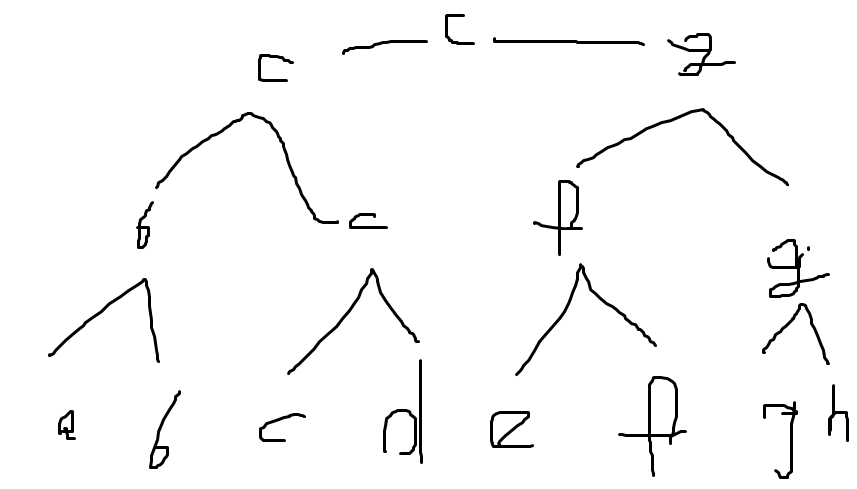 c
c g
b c f g
a b c d e f g h